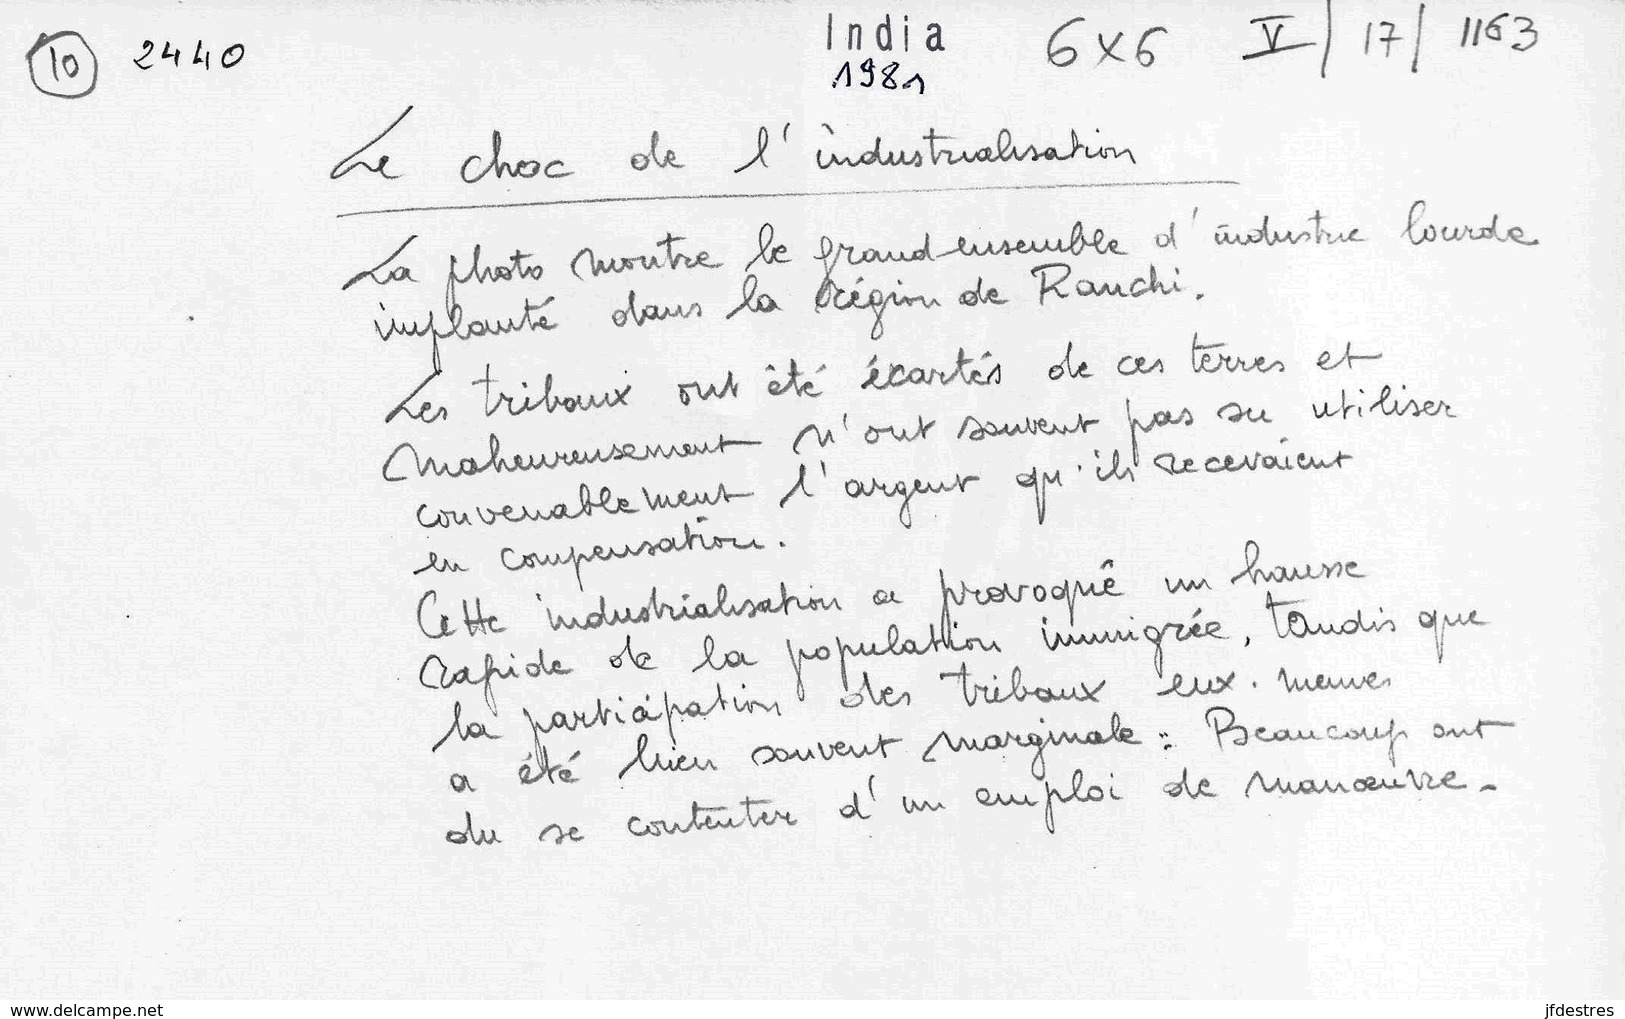 10 2440 India 6x6 V/ 17/ 1163
1981
Le choc de l'industrialisation
La photo montre le grand ensemble d'industrie lourde
implanté dans la région de Ranchi.
Les tribaux ont été écartés de ces terres et
maheureusement n'ont souvent pas su utiliser
convenablement l'argent qu'ils recevaient
en compensation.
Cette industrialisation a provoqué un hausse
rapide de la population immigrée, tandis que
la participation des tribaux eux-memes
a été bien souvent marginale : Beaucoup ont
du se contenter d'un emploi de manœuvre.
www.delcampe.net jfdestres